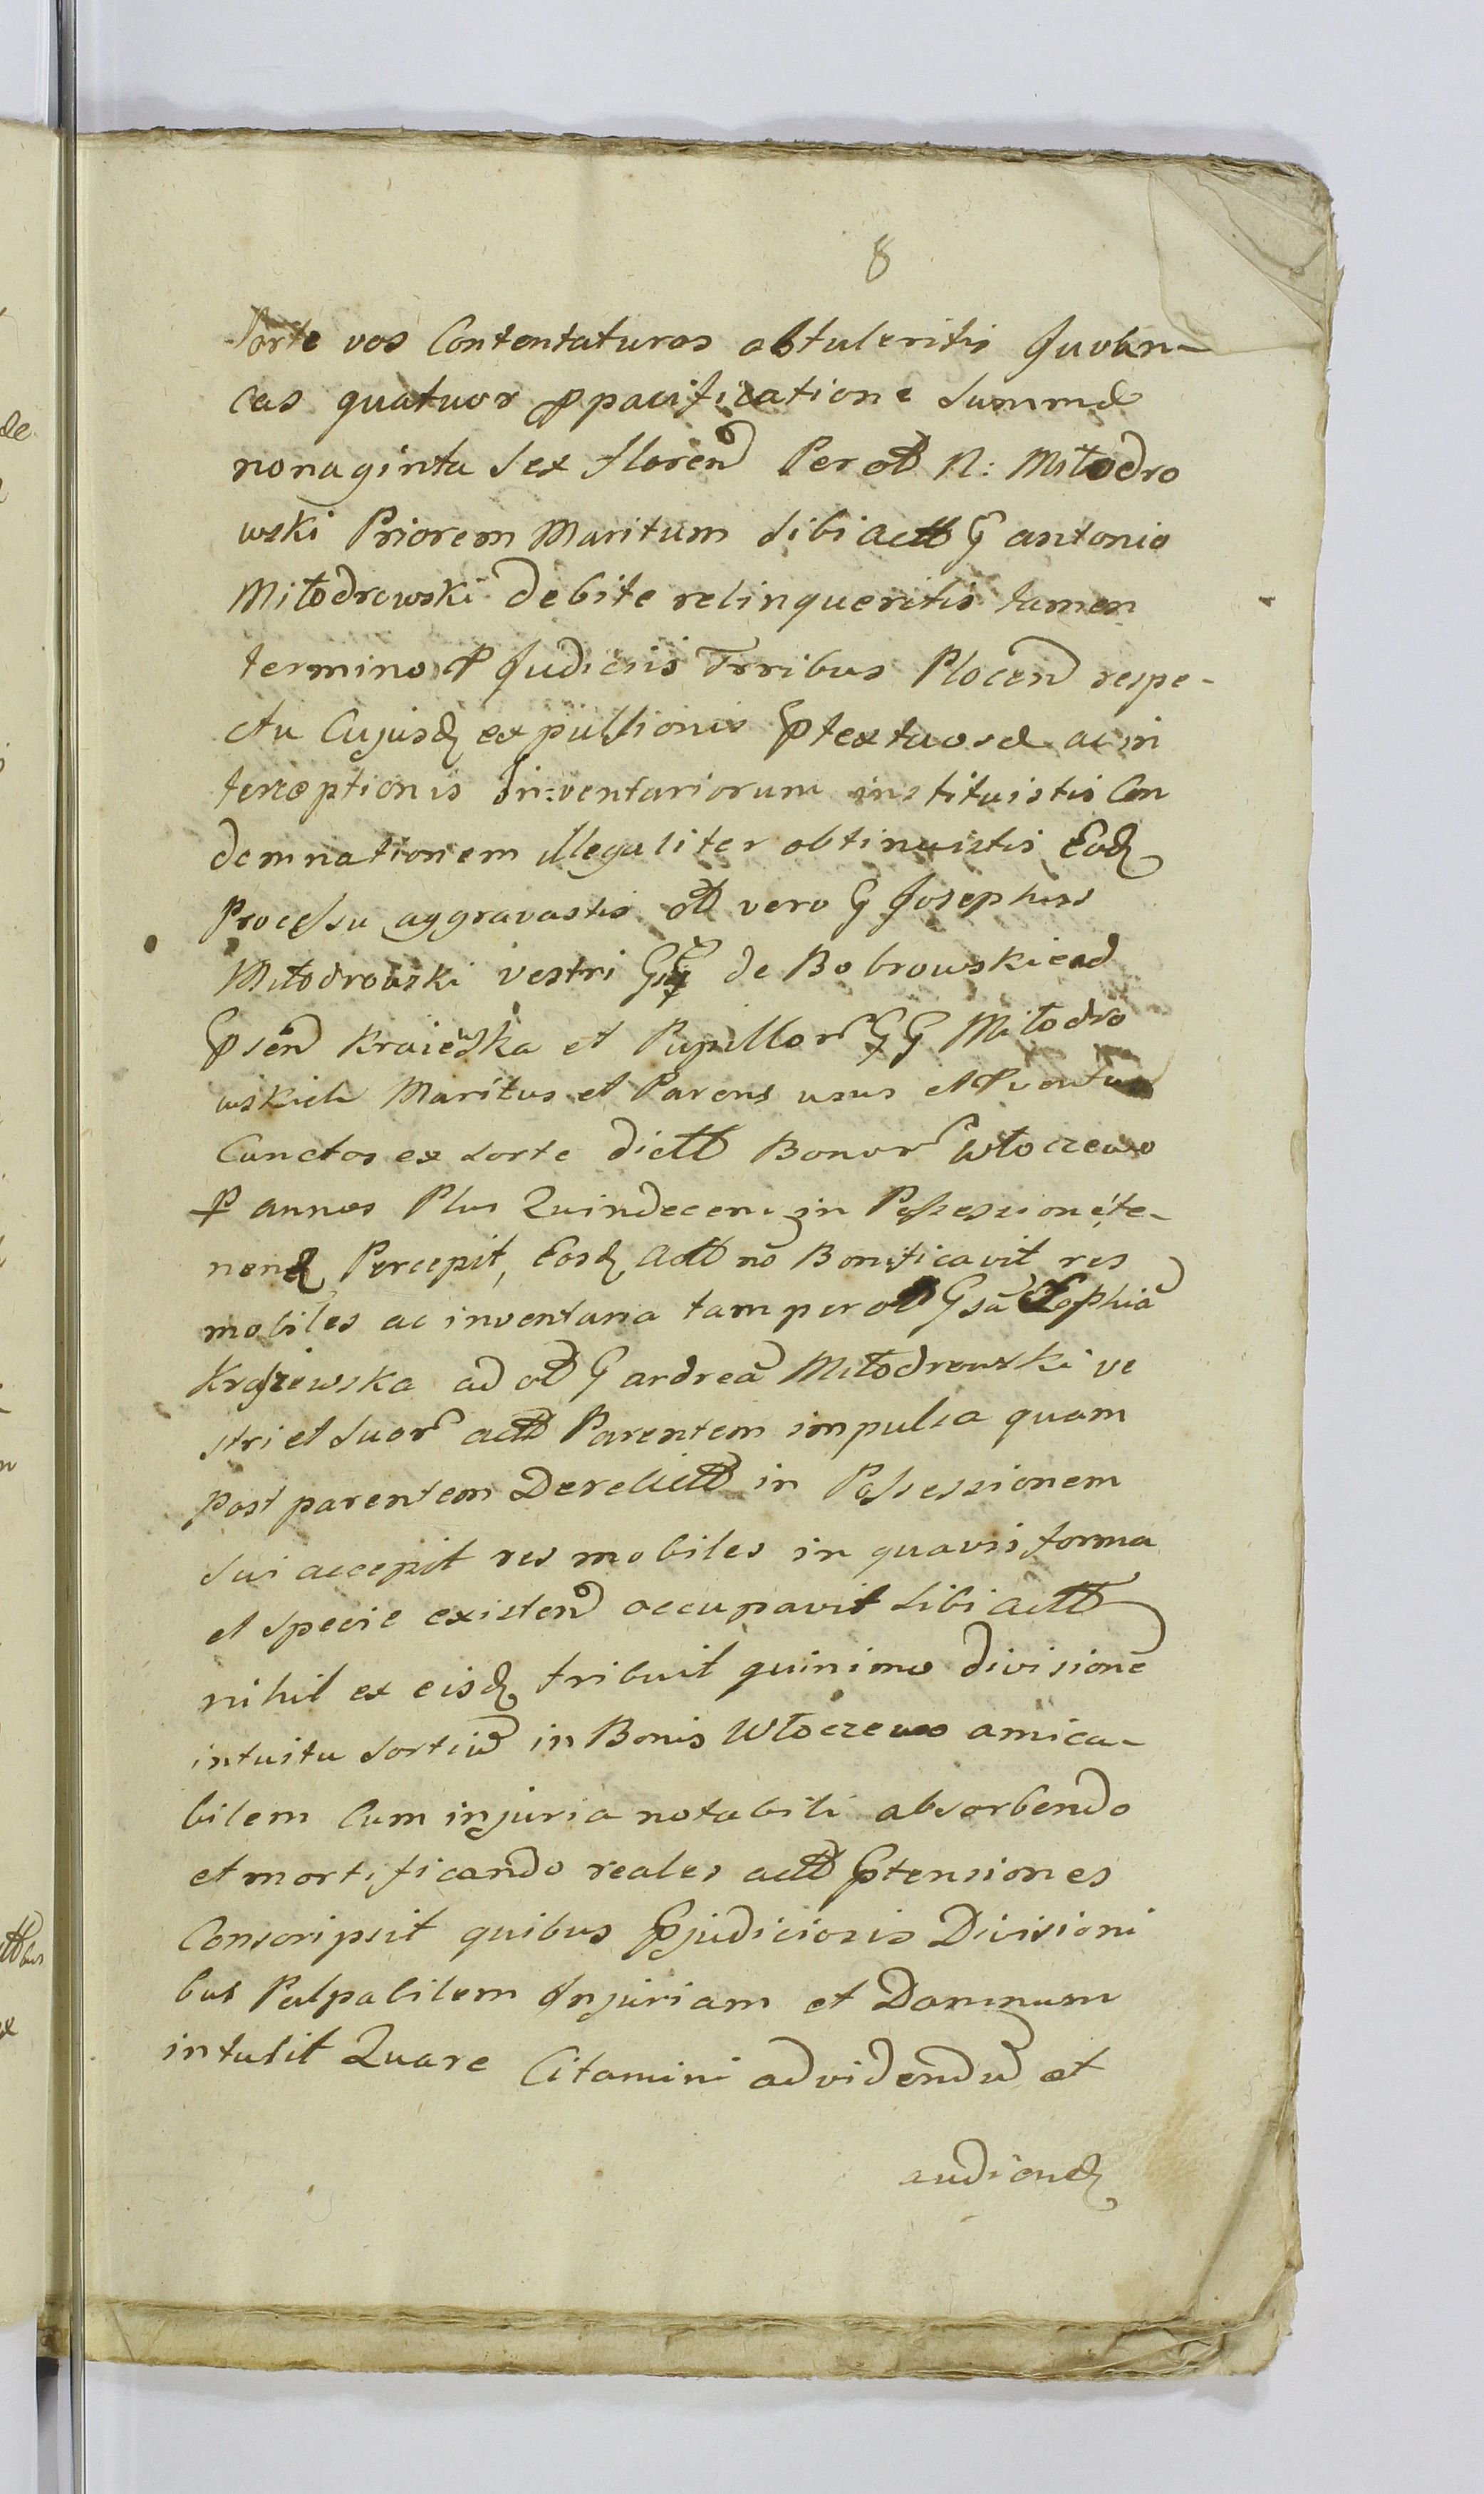 8
Sorte vos Contentaturos obtuleritis Juven-
cas quatuor p pacificatione Summæ
nonaginta Sex floren Per ol N: Miłodro
wski Priorem Maritum Sibi actt G antonio
Miłodrowski debite relinqueritis tamen
termino P Judiciis Trribus Plocen respe-
ctu Cujusq expulsionis ptextuosæ ac in
terceptionis Inventariorum instituistis Con
demnationem illegaliter obtinuistis Eoq
Processu aggravastis ol vero G Josephus
Miłodrowski vestri Gsæ de Bobrowskie ad
psen Kraiewska et Pupillor GG Miłodro
wskich Maritus et Parens usus et Pventus
Cunctos ex Sorte dictt Bonor Włoczewo
P annos Plus Quindecem in Possessione te-
nenq Percepit, Eosq actt no Bonificavit res
mobiles ac inventaria tam per ol Gsa Zophia
Kraiewska ad ol G andrea Miłodrowski ve
stri et Suor actt Parentem impulsa quam
post parentem Derelictt in Possessionem
Sui accepit res mobiles in quavis forma
et Specie existen occupavit Sibi actt
nihil ex eisq tribuit quinimo divisione
intuitu Sortiu in Bonis Włoczewo amica-
bilem Cum injuria notabili absorbendo
et mortificando reales actt ptensiones
Conscripsit quibus pjudiciosis Divisioni
bus Palpabilem Injuriam et Damnum
intulit Quare Citamini ad videndu et
audienq